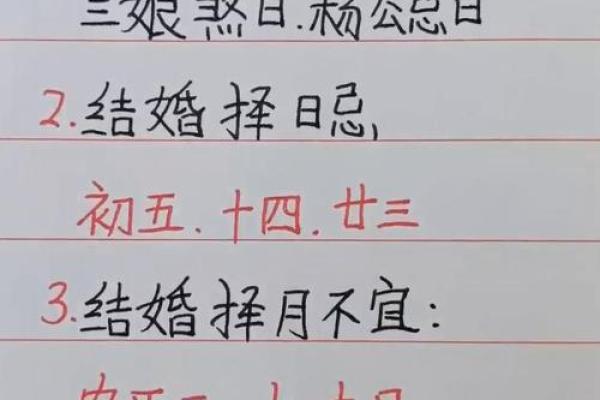 三娘煞日.杨公忌日
2.结婚择日忌,
初五.十四.廿三
3.结婚择月不宜: